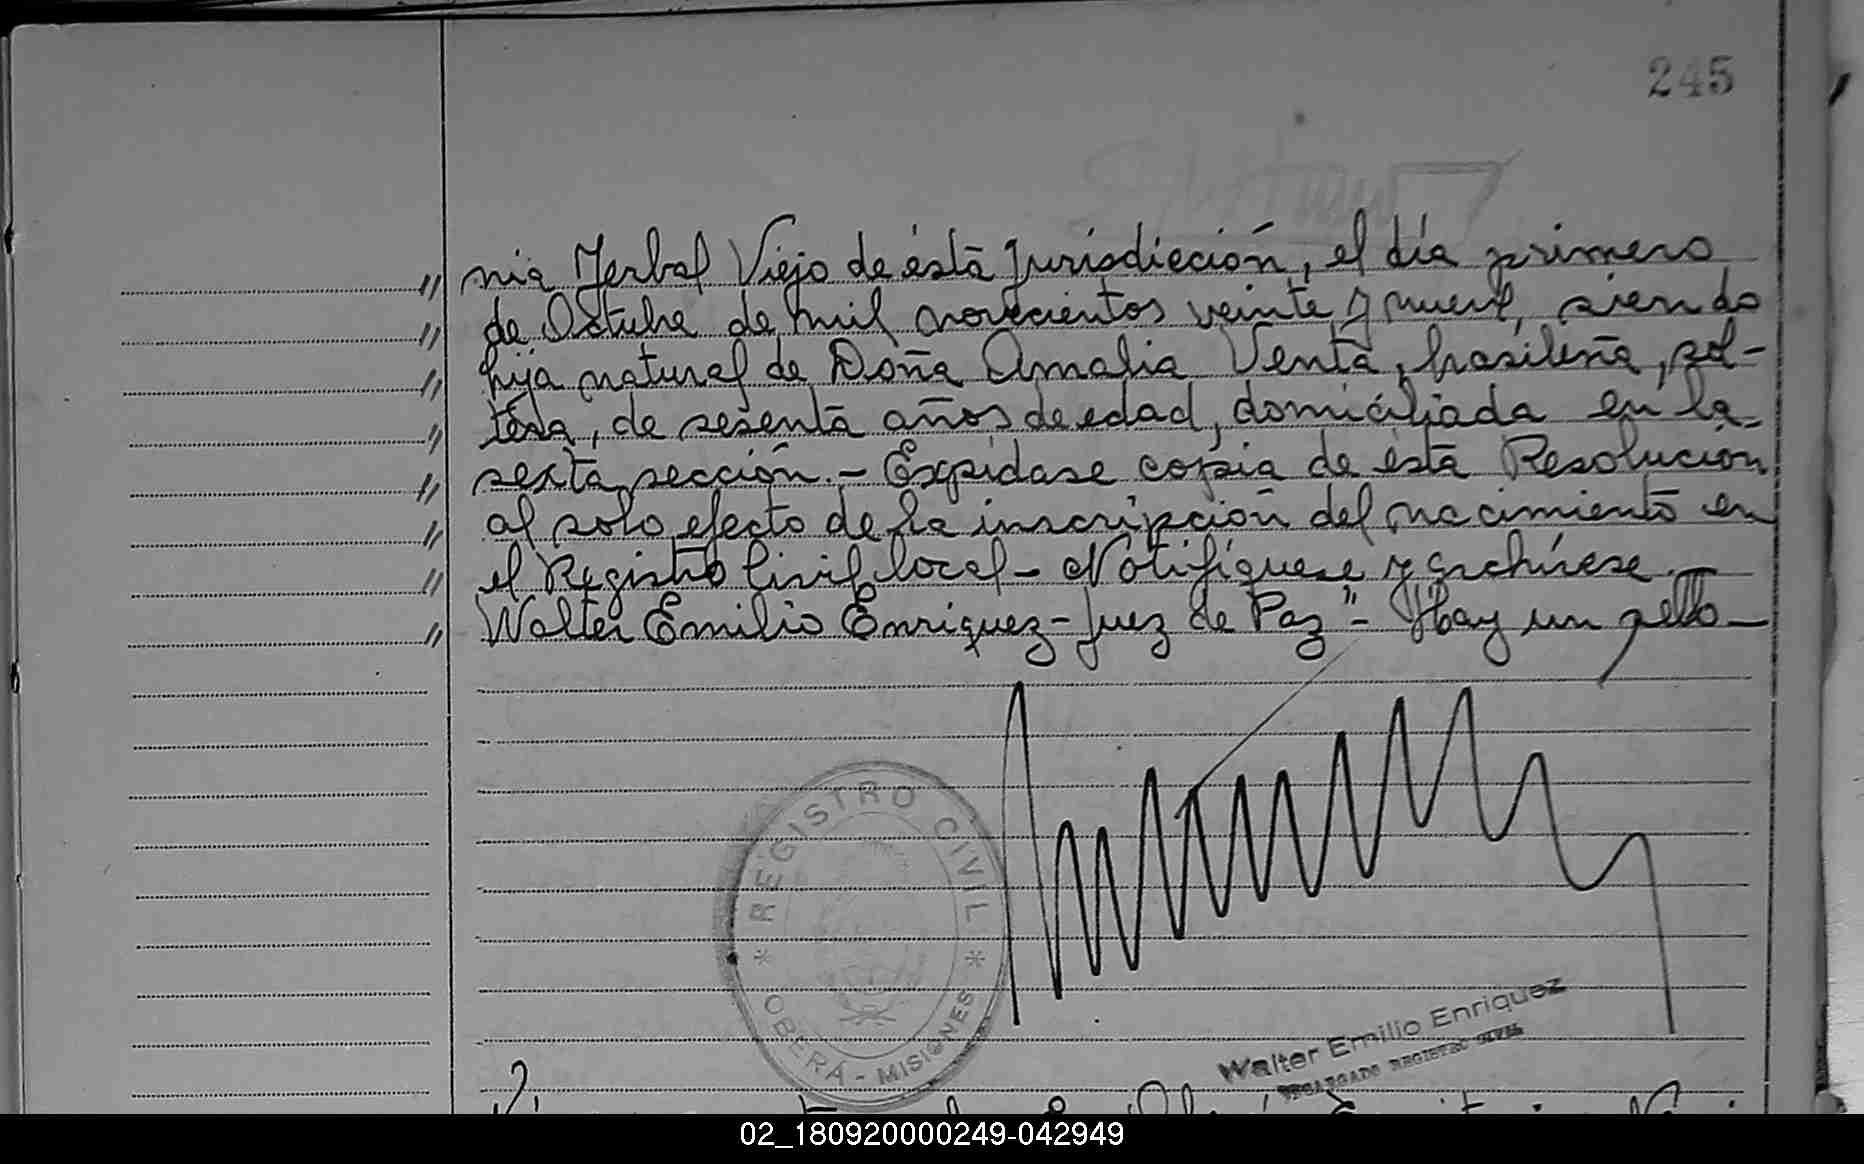 245
nia Yerbal Viejo de ésta Jurisdicción, el día primero
de Octubre de mil novecientos veinte y nueve, siendo
hija natural de Doña Amalia Venta, brasileña, sol-
tera, de sesenta años de edad, domiciliada en la
sexta sección.- Expídase copia de ésta Resolución
al solo efecto de la inscripción del nacimiento en
el Registro Civil local- Notifíquese y archívese.
Walter Emilio Enriquez- Juez de Paz"- "Hay un sello-
REGISTRO CIVIL
* OBERÁ - MISIONES *
Walter Emilio Enriquez
ENCARGADO REGISTRO CIVIL
02_180920000249-042949